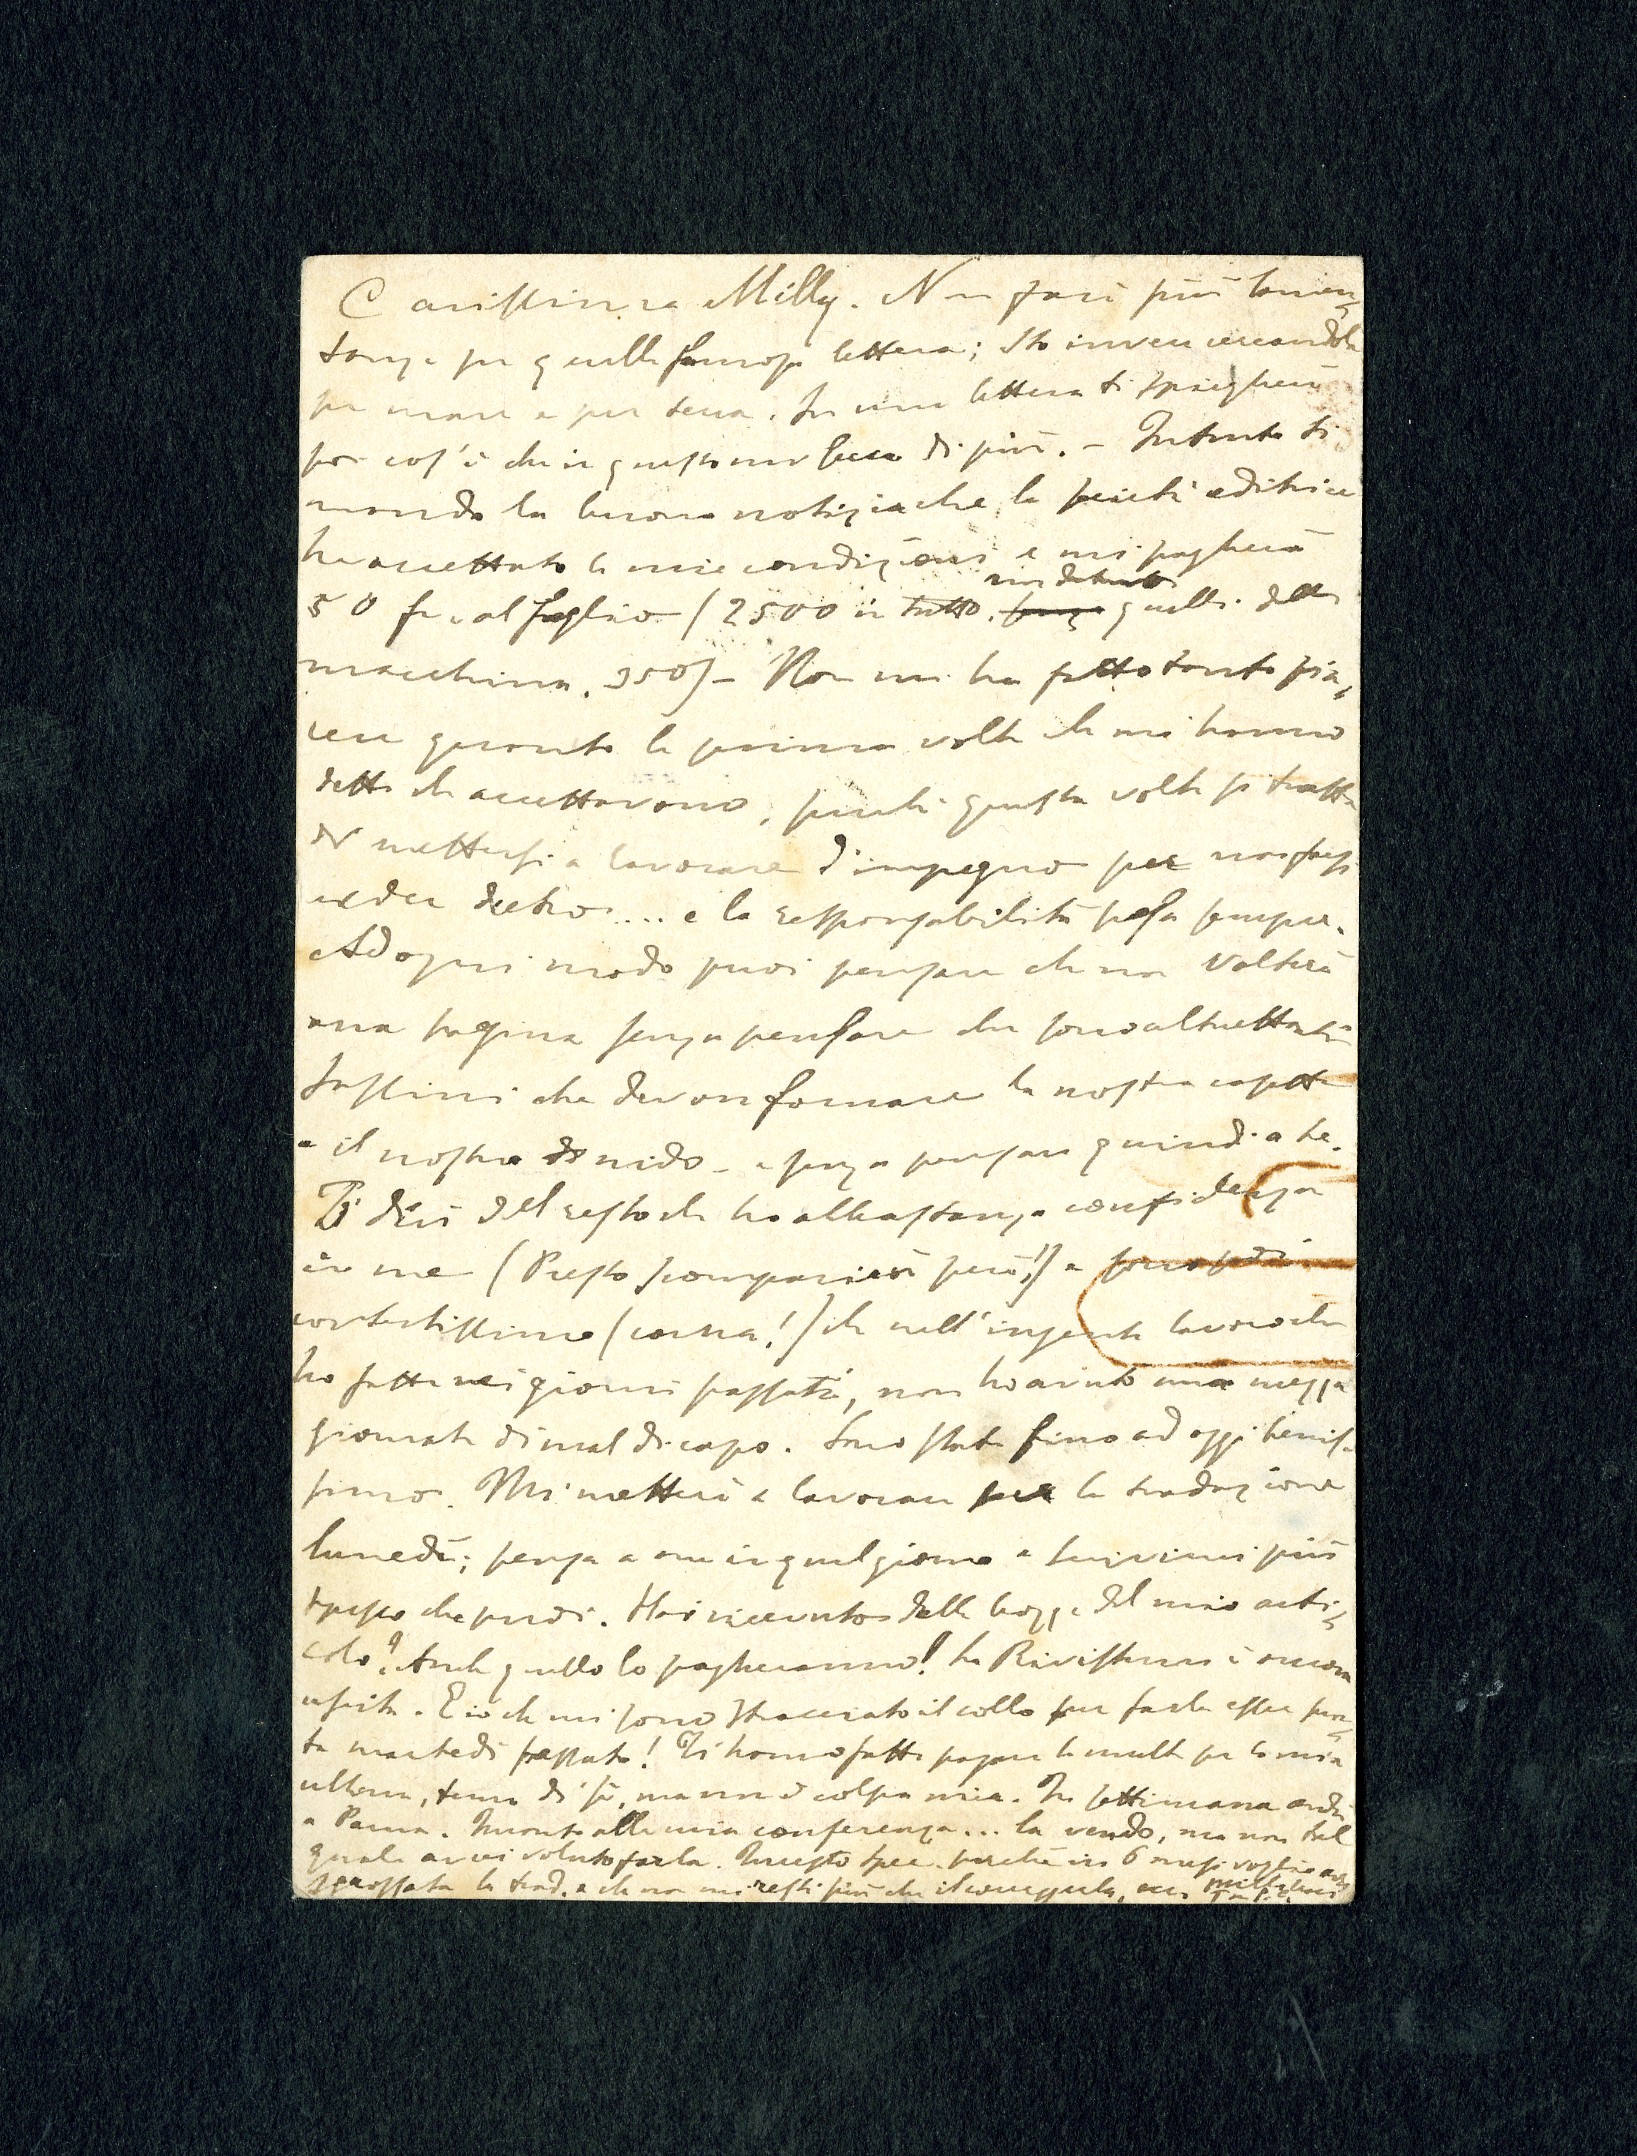 Carissima Milly. Non farò più lamen=
tanze per quella famosa lettera; Sto invece cercandola
per mare e per terra. In una lettera ti spiegherò
poi cos'è che in questo mi secca di più. - Intanto ti
mando la buona notizia che la società editrice
ha accettato le mie condizioni e mi pagherà
50 fr. al foglio (2500 in tutto. non detratto quelli della
macchina. 350) - Non mi ha fatto tanto pia=
cere quanto la prima volta che mi hanno
detto che accettavano, perchè questa volta si tratta
di mettersi a lavorare d'impegno per non farsi
veder dietro .... e la responsabilità pesa sempre.
Ad ogni modo puoi pensare che non volterò
una pagina senza pensare che sono altrettanti
che devon formare la nostra casetta
e il nostro nido - e senza pensare quindi a te.
Ti dirò del resto che ho abbastanza confidenza
in me (Presto scomparirà però!) e sono poi
contentissimo (corna!) che nell'ingente lavoro che
ho fatto nei giorni passati, non ho avuto una mezza
giornata di mal di capo. Sono stato fino ad oggi benis=
simo. Mi metterò a lavorare per la traduzione
lunedì; pensa a me in quel giorno e scrivimi più
spesso che puoi. Hai ricevuto delle bozze del mio arti=
colo? Anche quello lo pagheranno! La Rivista non è ancora
uscita. E io che mi sono straccato il collo per farla esser pron=
ta martedì passato! Ti hanno fatto pagare la multa per la mia
ultima, temo di sì, ma non è colpa mia. In settimana andrò
a Parma. Quanto alla mia conferenza... la vendo, ma non dal
quale avrei voluto farla. Questo spec. perchè in 6 mesi voglio aver
sgrossata la trad. e che non mi resti più che